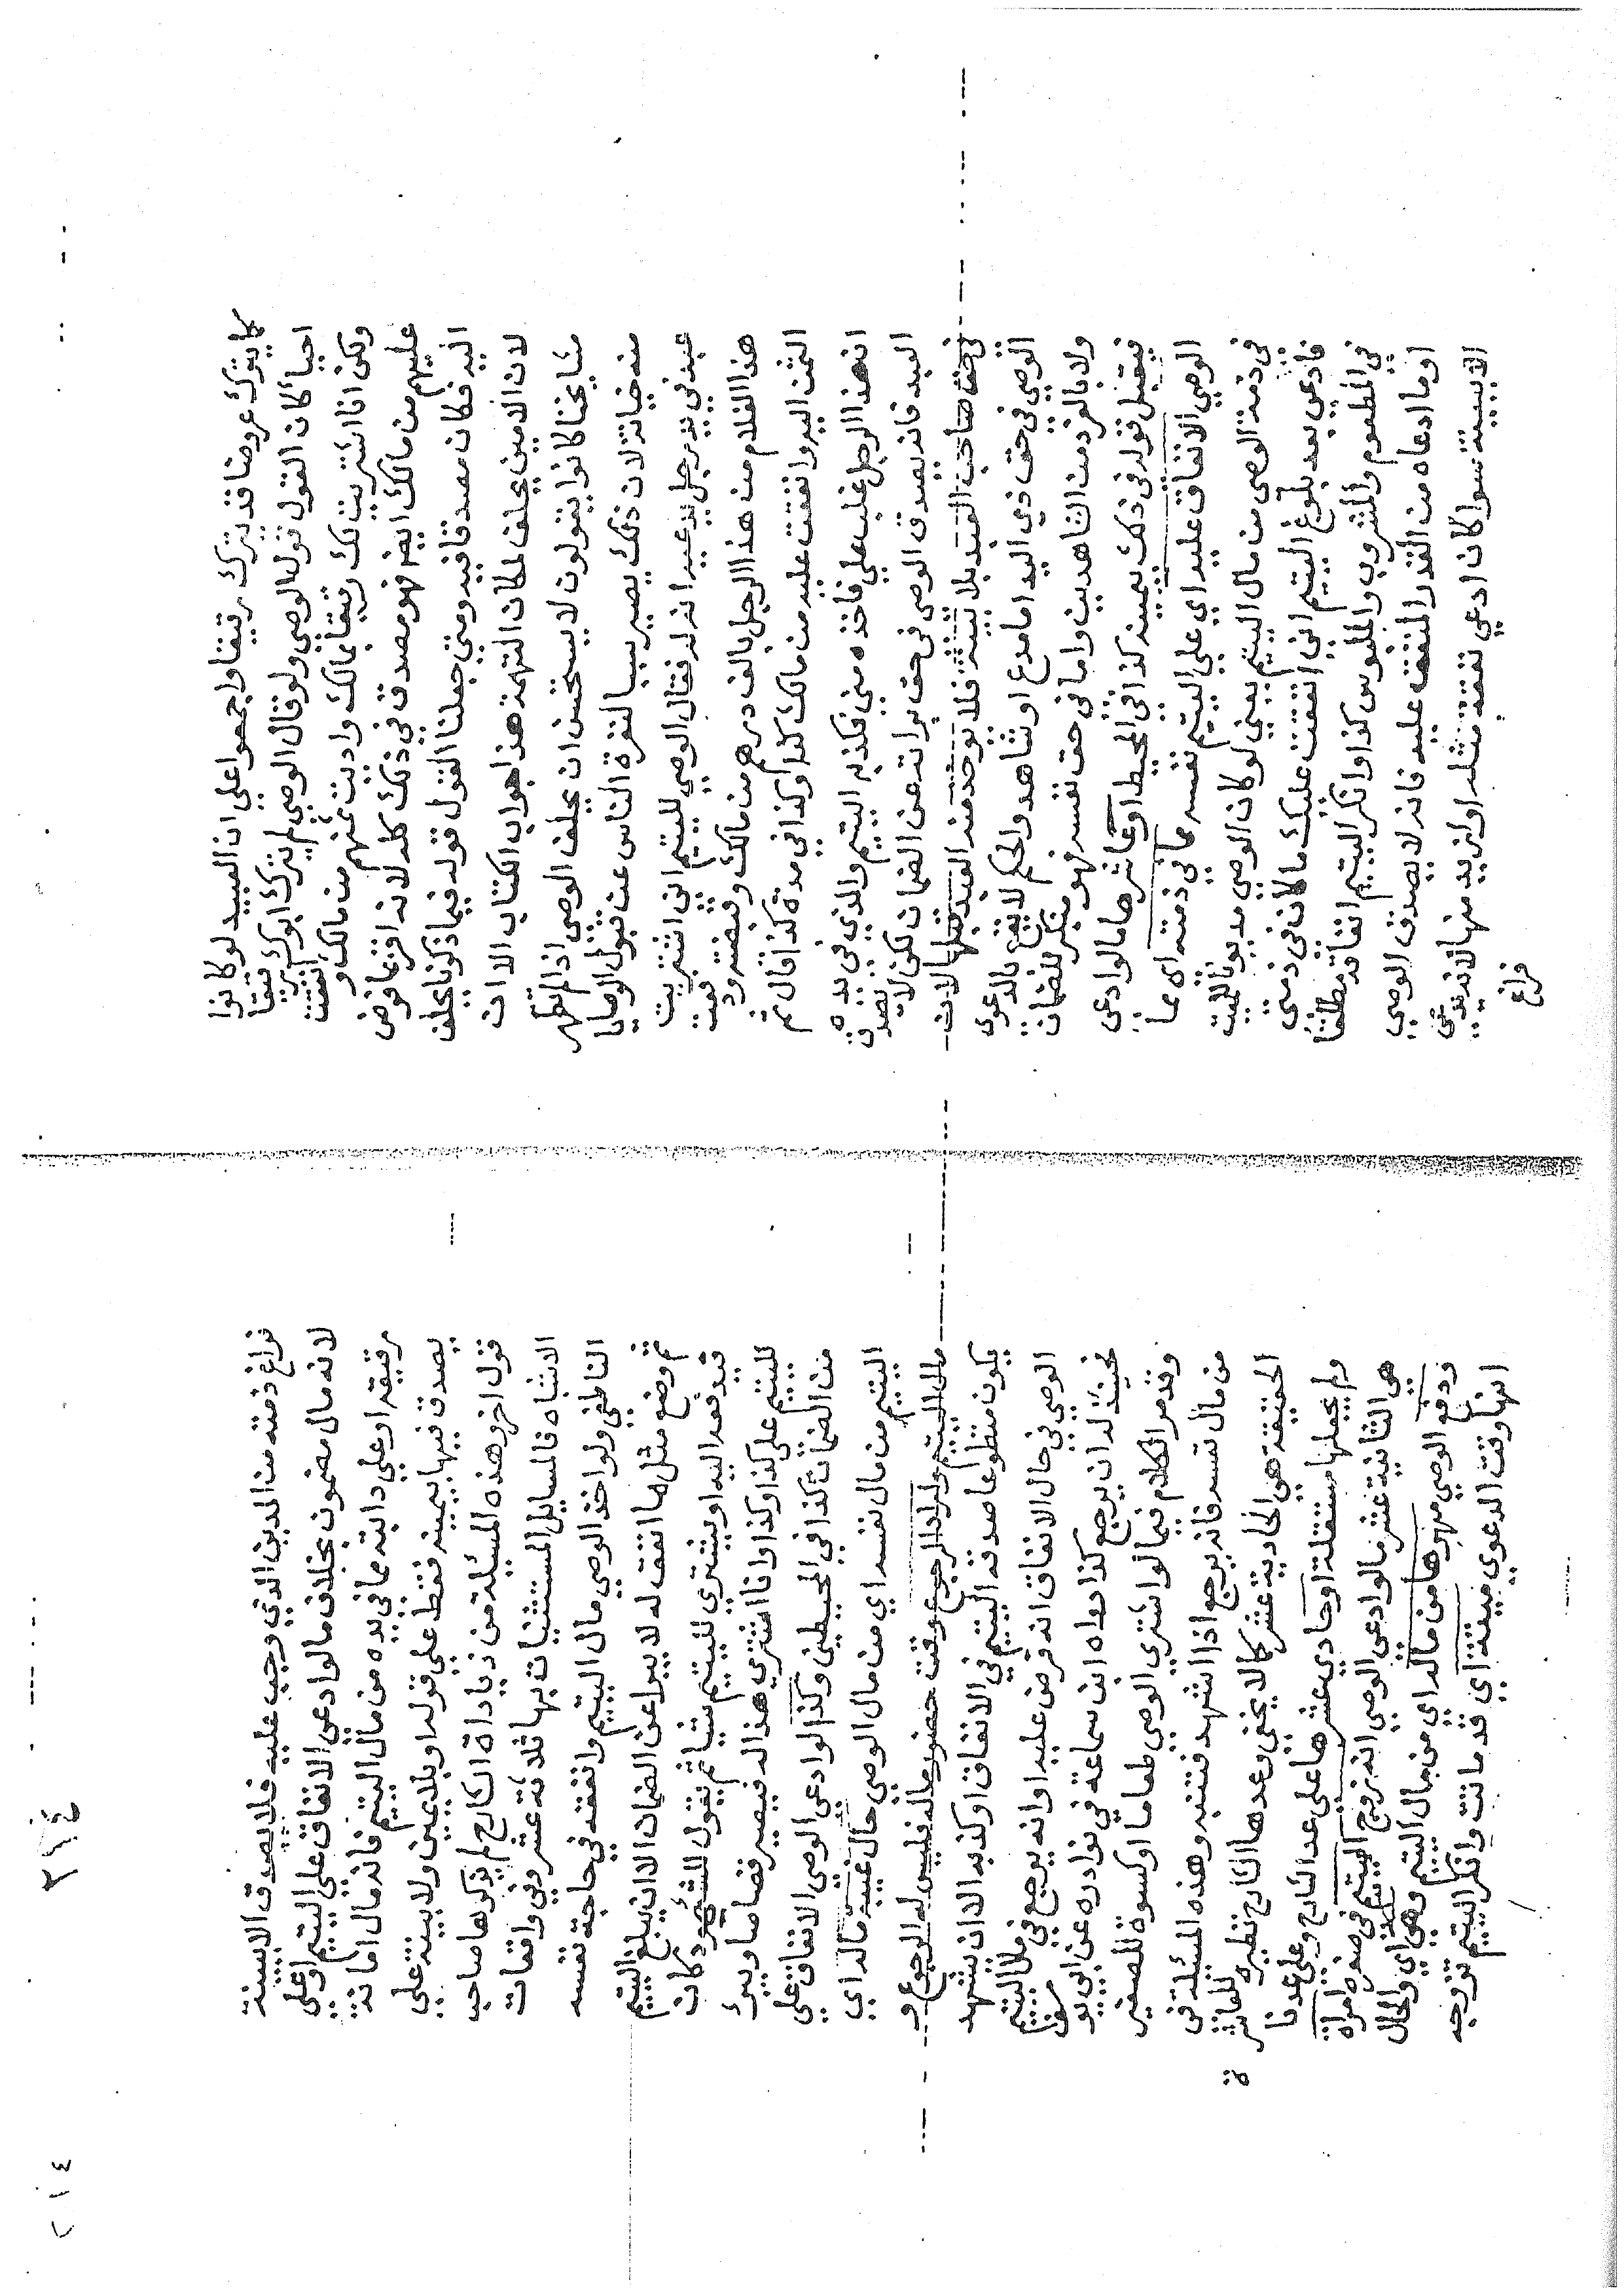 كما يترك عروضا قد يترك رقيقا واجمعوا علي ان العبيد لو كانوا
احيا كان القول قول الوصي ولو قال الوصي لم يترك ابوك رقيقا
ولكن انا اشتريت لك رقيقا بمالك واديت ثمنهم من مالك وانفقت
عليهم من مالك ايضا فهو مصدق في ذلك كله لانه اقر بما فوض
اليه فكان مصدقا فيه ومتي جعلنا القول قوله فيما ذكرنا يحلف
لان الامين يحلف لمكان التهمة هذا جواب الكتاب الا ان
مشايخنا كانوا يقولون لا يستحسن ان يحلف الوصي اذا لم تظهر
منه خيانة لان ذلك يصير سببا لنفرة الناس عن قبول الوصايا
عبد في يد رجل يدعيه انه له فقال الوصي لليتيم اني اشتريت
هذا الغلام من هذا الرجل بالف درهم من مالك وقبضته ودفعت
الثمن اليه وانفقت عليه من مالك كذا وكذا في مدة كذا قال ثم
ان هذا الرجل غلب علي فاخذه مني فكذبه اليتيم والذي في يده
العبد فانه يصدق الوصي في حق براته عن الضمان لكن لا يصدق
في حق صاحب العبد بلا بينة فلا يوخذ منه العبد قبلها لان
الوصي في حق ذي اليد اما مدع او شاهد والحكم لا يقع بالدعوي
ولا بالفرد من الشاهدين واما في حق نفسه فهو منكر للضمان
فيقبل قوله في ذلك بيمينه كذا في المحيط وعاشرها ما لو ادعي
الوصي الانفاق عليه اي علي اليتيم نفسه مما في ذمته اي مما
في ذمة الوصي من مال اليتيم يعني لو كان الوصي مديونا للميت
فادعي بعد بلوغ اليتيم اني انفقت عليك ما كان في ذمتي
في المطعوم والمشروب والملبوس كذا وانكر اليتيم انفاقه مطلقا
او ما ادعاه من القدر المنفق عليه فانه لا يصدق الوصي
الا ببينة سوا كان ادعي نفقة مثله او ازيد منها لانه يدعي
فراغ
فراغ ذمته من الدين الذي وجب عليه فلا يصدق الا ببينة
لانه مال مضمون بخلاف ما لو ادعي الانفاق علي اليتيم او علي
رقيقه او علي دابته مما في يده من مال اليتيم فانه مال امانة
يصدق فيها بيمينه فقط علي قول او بلا يمين ولا بينة علي
قول اخر وهذه المسئلة من زيادة الشارح لم يذكرها صاحب
الاشباه فالمسايل المستثنيات بها ثلاثة عشر وفي واقعات
الناطفي ولو اخذ الوصي مال اليتيم وانفقه في حاجة نفسه
ثم وضع مثل ما انفق له لا يبرا عن الضمان الا ان يبلغ اليتيم
فيدفعه اليه او يشتري لليتيم شيا ثم يقول للشهود كان
لليتيم علي كذا وكذا وانا اشتري هذا له فيصير قصاصا ويبرئ
من الضمان كذا في المحيطين وكذا لو ادعي الوصي الانفاق علي
اليتيم من مال نفسه اي من مال الوصي حال غيبة ماله اي
مال اليتيم واراد الرجوع وقت حضور ماله فليس له الرجوع و
يكون متطوعا صدقه اليتيم في الانفاق او كذبه الا ان يشهد
الوصي في حال الانفاق انه قرض عليه او انه يرجع في مال اليتيم
فحينئذ له ان يرجع كذا رواه ابن سماعة في نوادره عن ابي يوسف
وقد مر الكلام فيما لو اشتري الوصي طعاما او كسوة للصغير
من مال نفسه فانه يرجع اذا اشهد فتنبه وهذه المسئلة في
الحقيقة هي الحادية عشر كما لا يخفي وعدها الشارح نظيره للعاشرة
ولم يجعلها مستقلة وحادي عشرها علي عد الشارح وعلي عدنا
هي الثانية عشر ما لو ادعي الوصي انه زوج اليتيم في صغره امراة
ودفع الوصي مهرها من ماله اي من مال اليتيم وهي اي والحال
انها وقت الدعوي ميتة اي قد ماتت وانكر اليتيم تزوجه
٢١٤